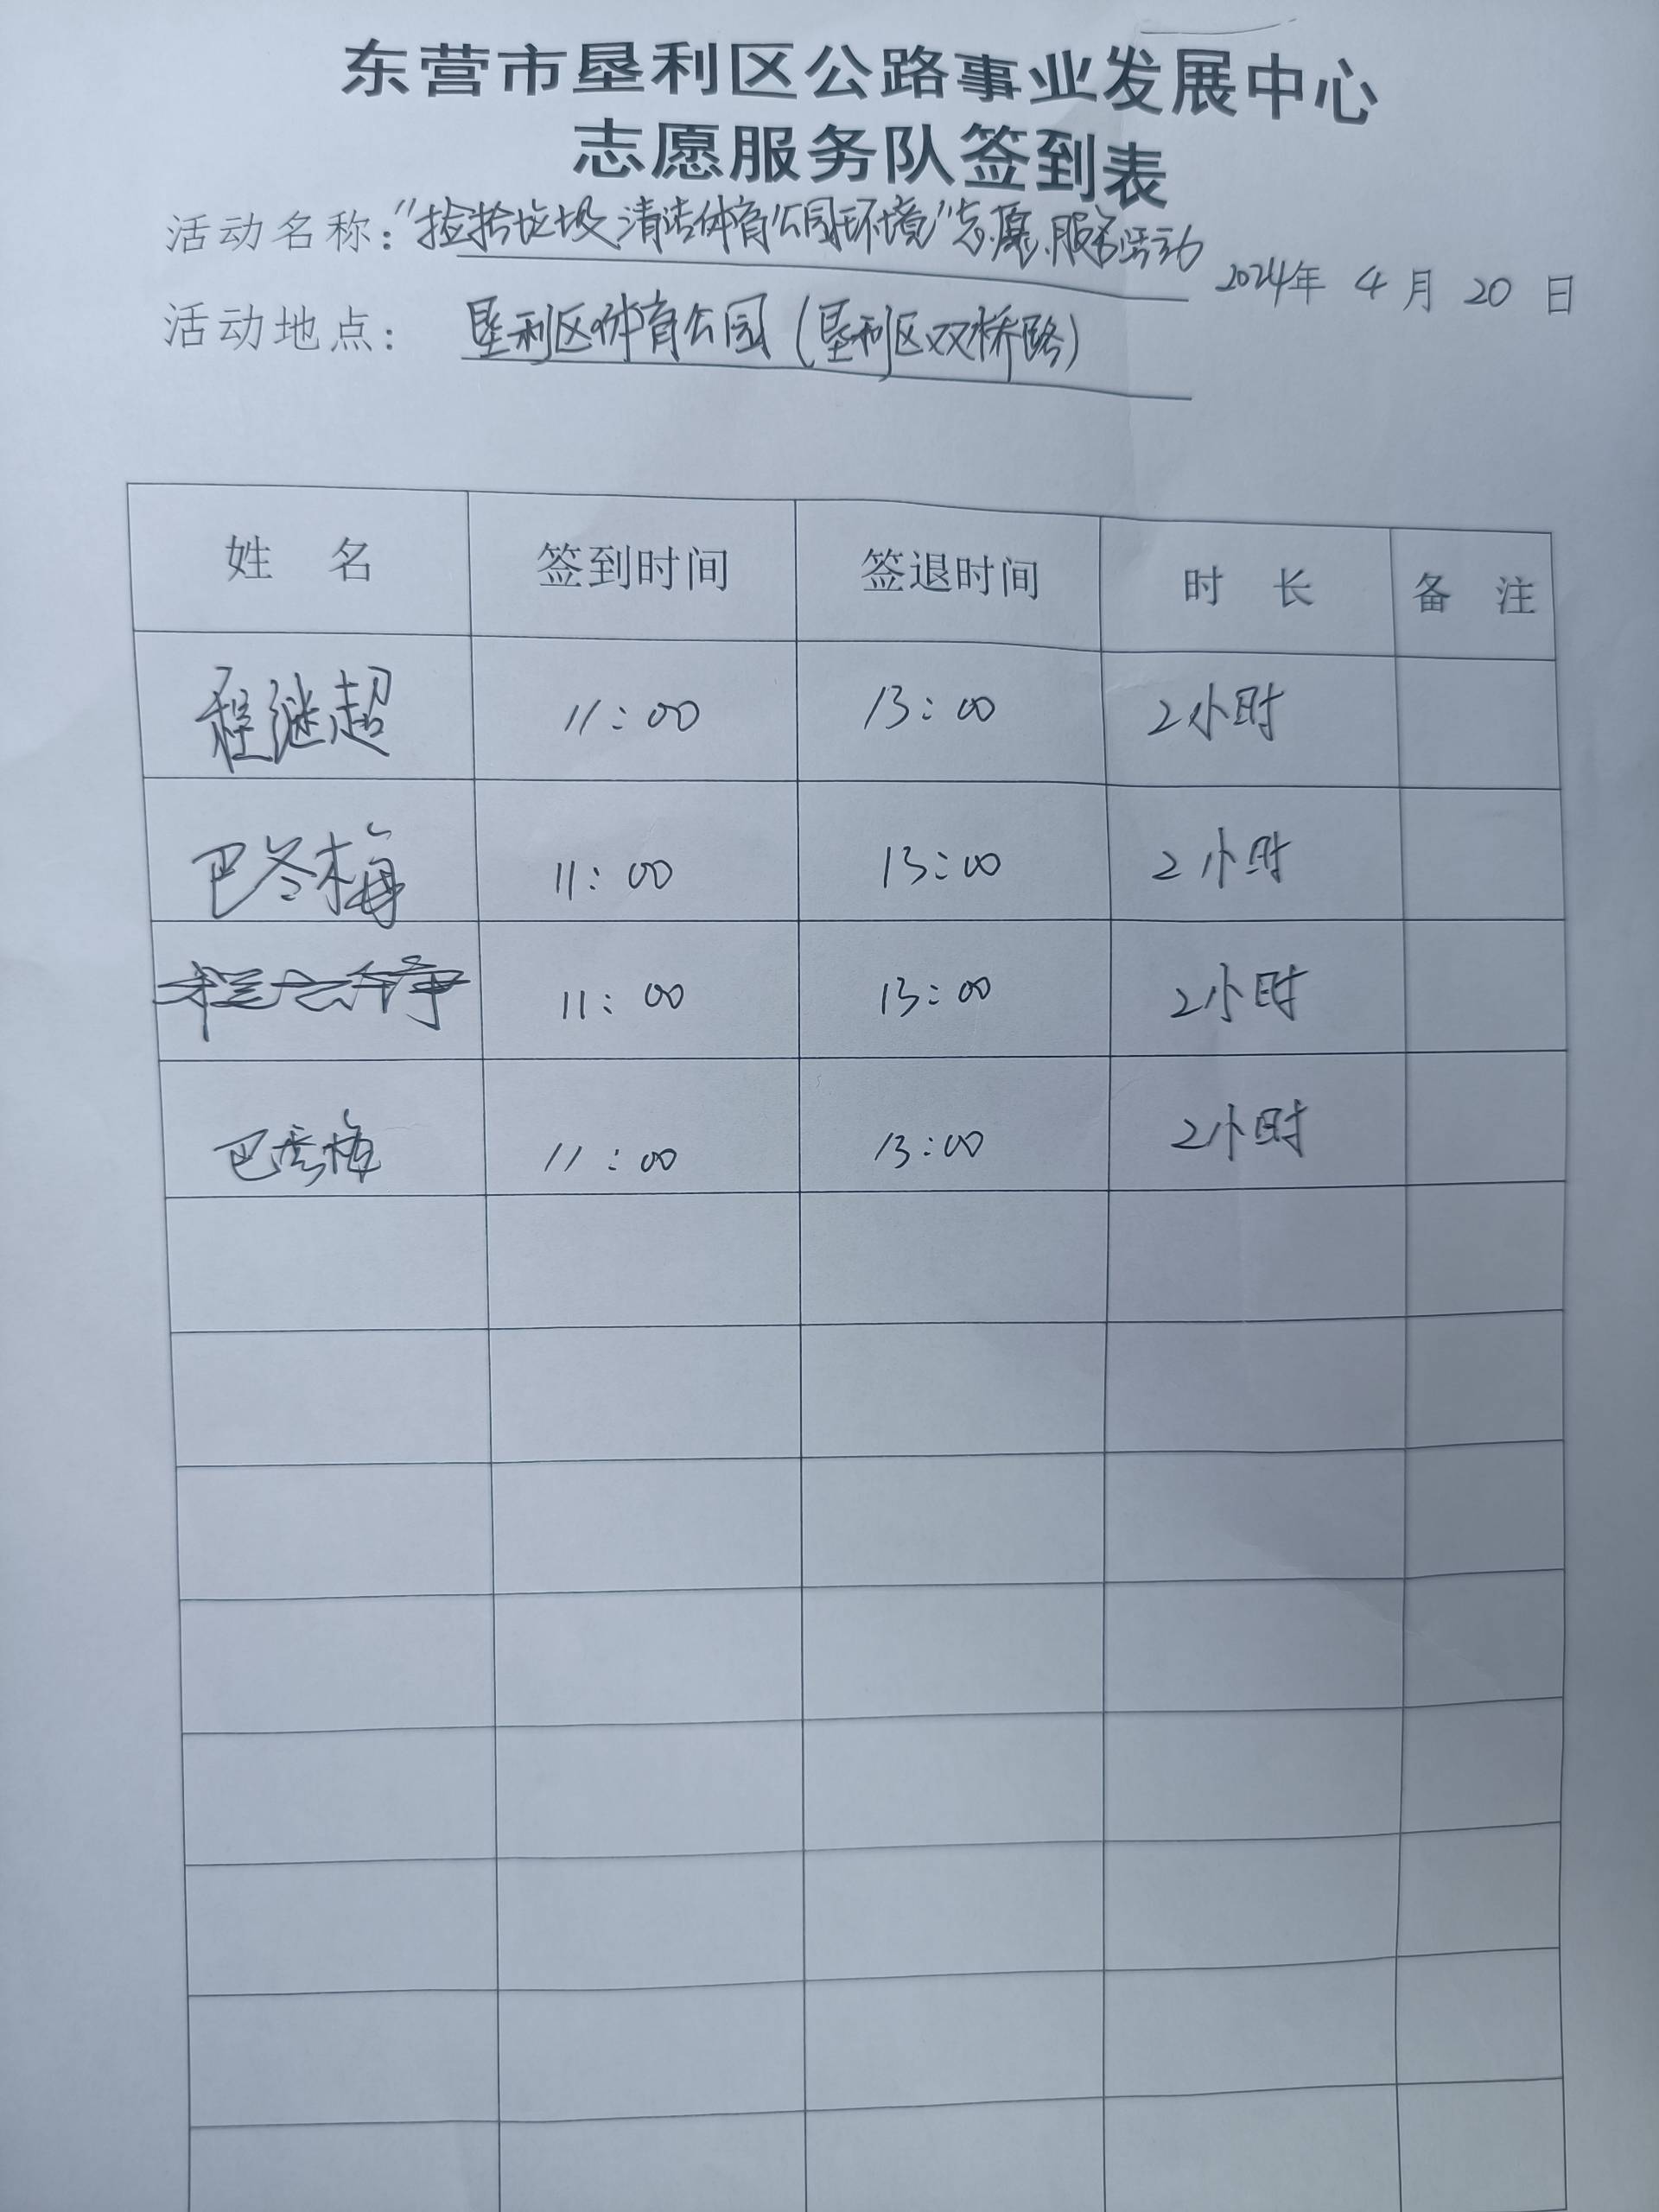 东营市垦利区公路事业发展中心
志愿服务队签到表
活动名称："捡拾垃圾 清洁体育公园环境"志愿服务活动
2024年 4 月 20 日
活动地点：垦利区体育公园（垦利区双桥路）
姓 名 签到时间 签退时间 时 长 备 注
程继超 11:00 13:00 2小时
巴冬梅 11:00 13:00 2小时
11:00 13:00 2小时
巴秀梅 11:00 13:00 2小时